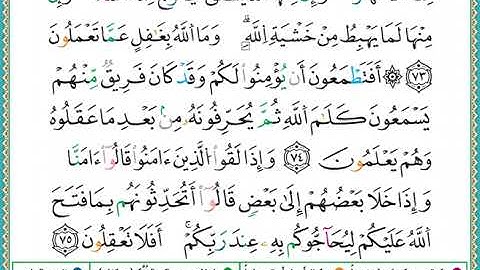 مِنْهَا لَمَا يَهْبِطُ مِنْ خَشْيَةِ اللَّهِ ۗ وَمَا اللَّهُ بِغَٰفِلٍ عَمَّا تَعْمَلُونَ
٧٣ ۞ أَفَتَطْمَعُونَ أَن يُؤْمِنُوا۟ لَكُمْ وَقَدْ كَانَ فَرِيقٌ مِّنْهُمْ
يَسْمَعُونَ كَلَٰمَ اللَّهِ ثُمَّ يُحَرِّفُونَهُۥ مِنۢ بَعْدِ مَا عَقَلُوهُ
وَهُمْ يَعْلَمُونَ ٧٤ وَإِذَا لَقُوا۟ الَّذِينَ ءَامَنُوا۟ قَالُوٓا۟ ءَامَنَّا
وَإِذَا خَلَا بَعْضُهُمْ إِلَىٰ بَعْضٍ قَالُوٓا۟ أَتُحَدِّثُونَهُم بِمَا فَتَحَ
اللَّهُ عَلَيْكُمْ لِيُحَآجُّوكُم بِهِۦ عِندَ رَبِّكُمْ ۚ أَفَلَا تَعْقِلُونَ ٧٥